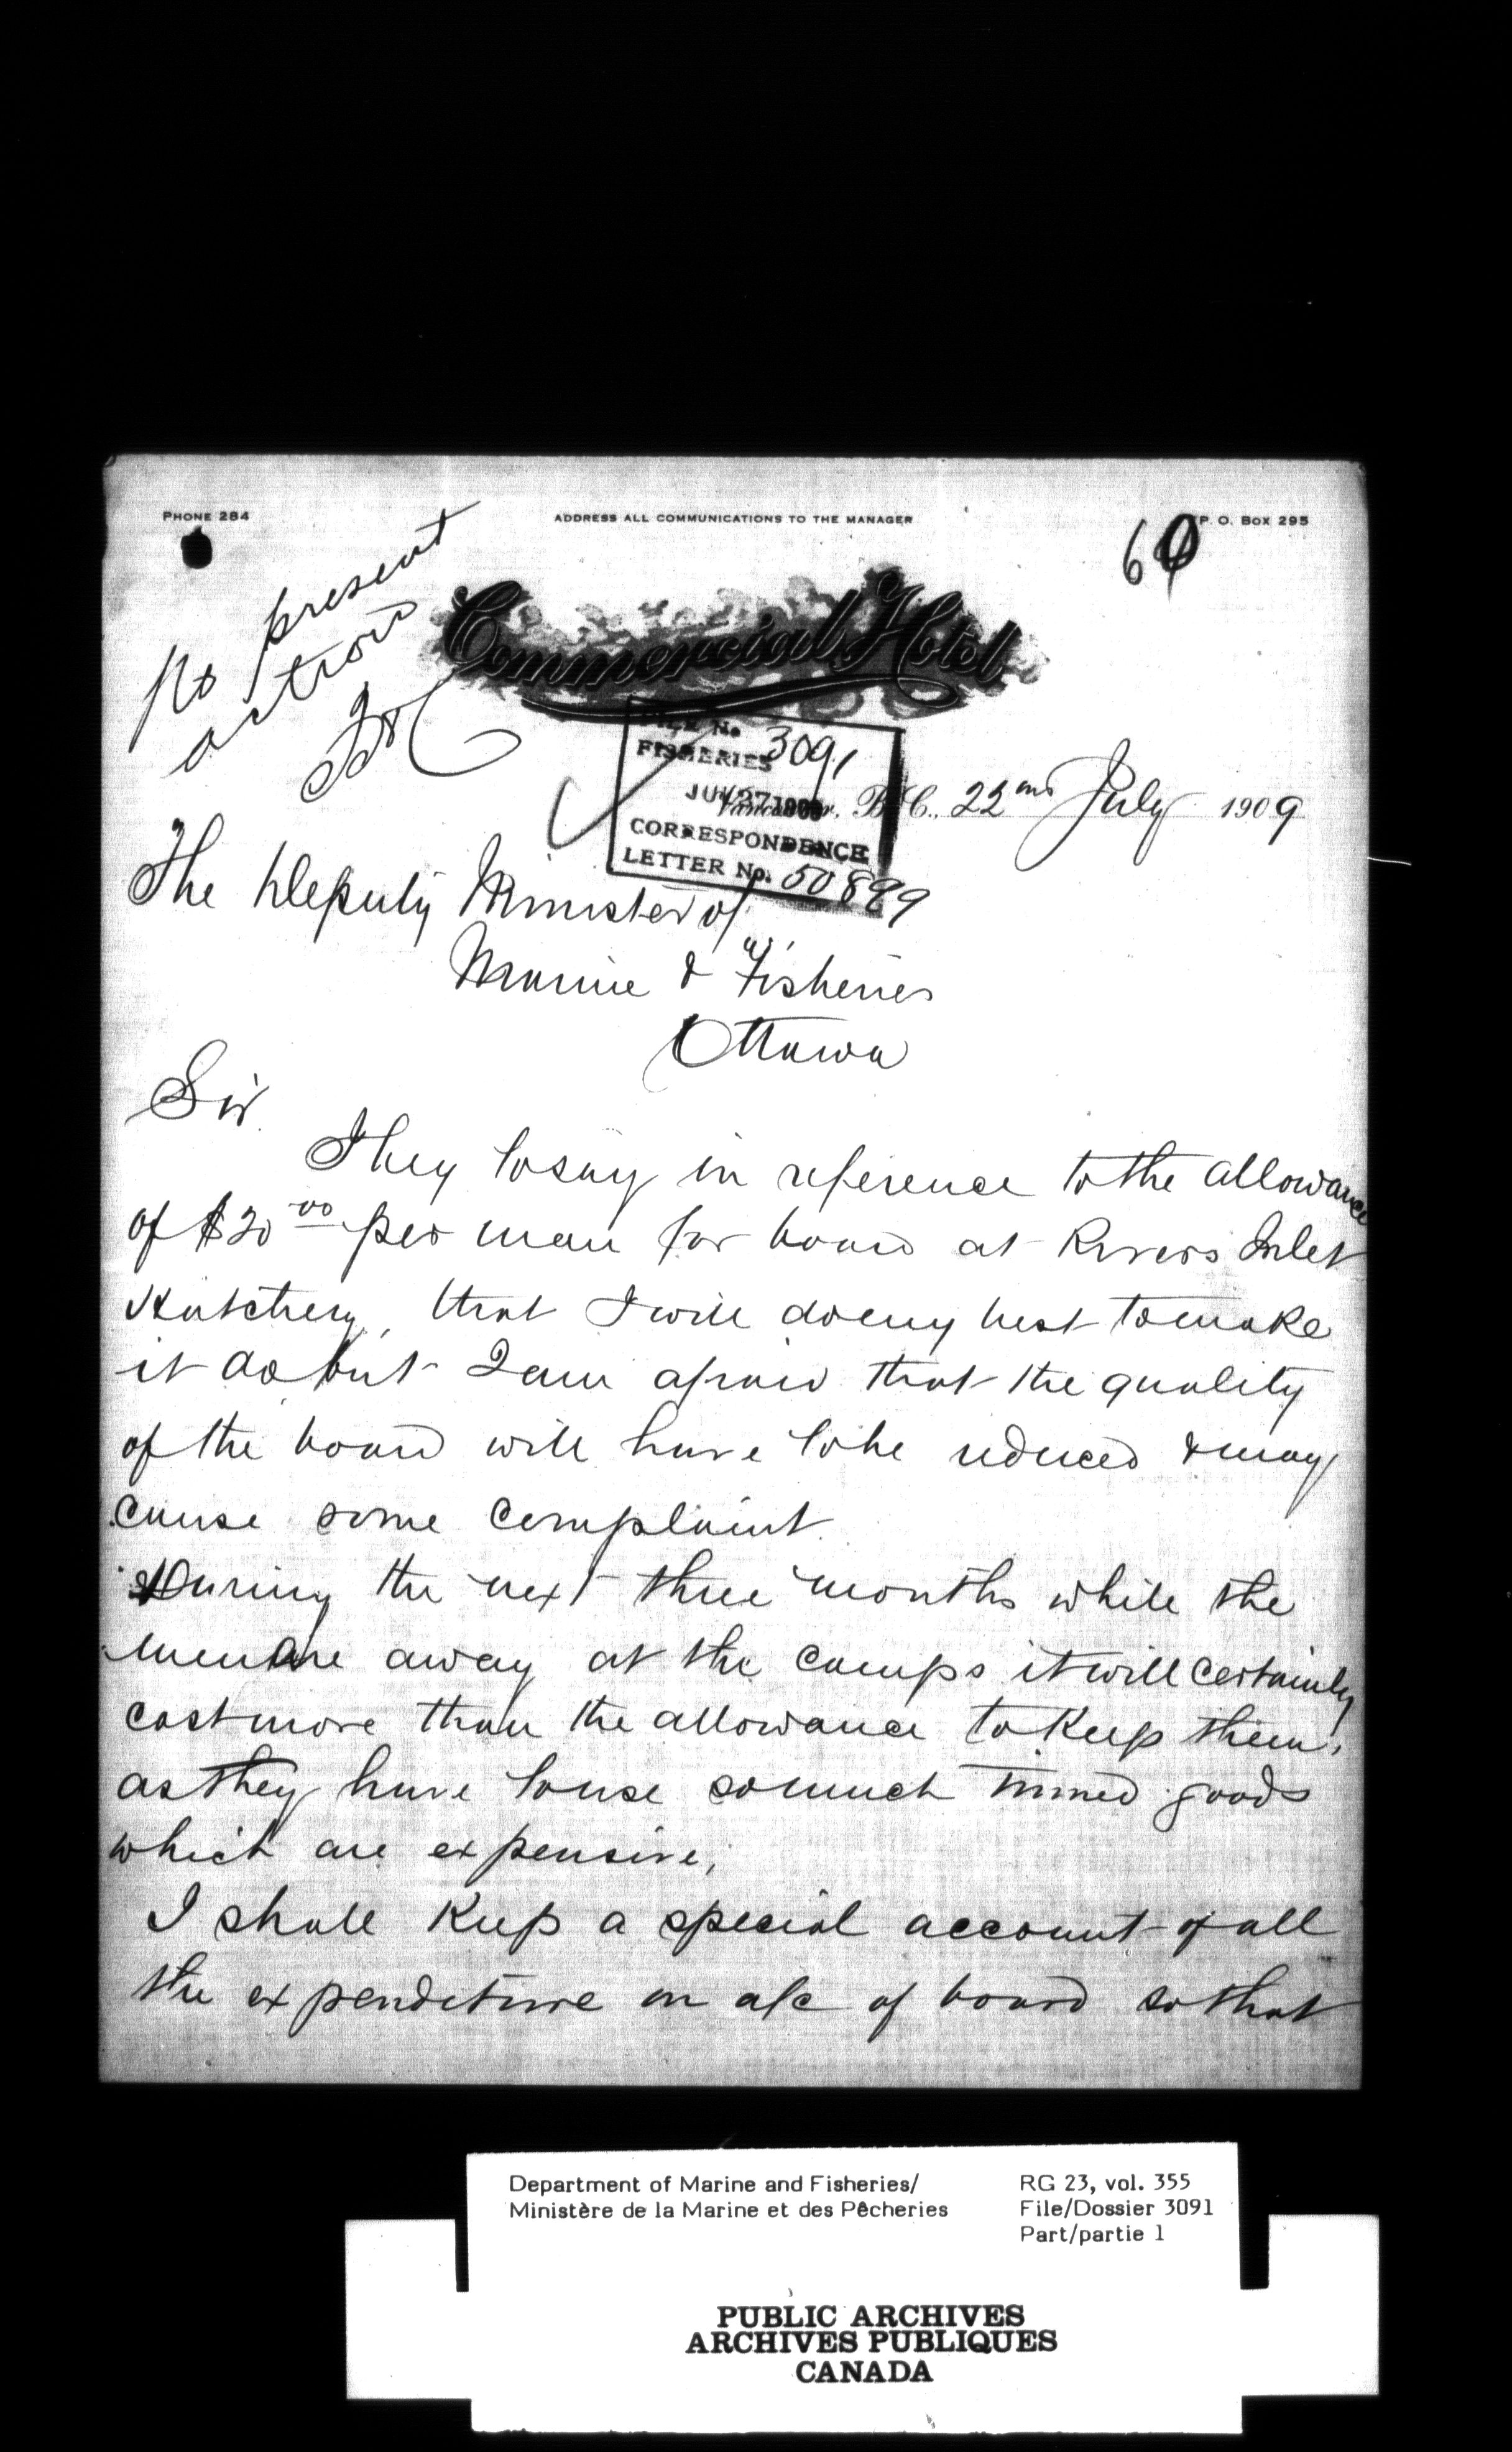 PHONE 284
ADDRESS ALL COMMUNICATIONS TO THE MANAGER
P. O. BOX 295
60
No present
action
Commercial Hotel
FILE No
FISHERIES 3091
JUL 27 1909
CORRESPONDENCE
LETTER No. 50899
Vancouver, B.C., 22nd July 1909
The Deputy Minister of
Marine & Fisheries
Ottawa
Sir
I beg to say in reference to the allowance
of $20 00 per man for board at Rivers Inlet
Hatchery, that I will do my best to make
it do but I am afraid that the quality
of the board will have to be reduced & may
cause some complaint.
During the next three months while the
men are away at the camps it will certainly
cost more than the allowance to keep them,
as they have to use so much tinned goods
which are expensive,
I shall keep a special account of all
the expenditure on a/c of board so that
Department of Marine and Fisheries/
Ministère de la Marine et des Pêcheries
RG 23, vol. 355
File/Dossier 3091
Part/partie 1
PUBLIC ARCHIVES
ARCHIVES PUBLIQUES
CANADA